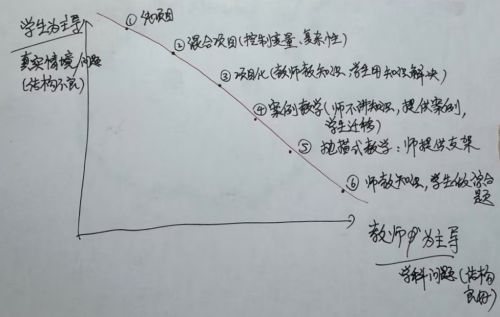 学生为主导
真实情境/问题
(结构不良)
① 纯项目
② 混合项目(控制变量、复杂性)
③ 项目化(教师教知识,学生用知识解决)
④ 案例教学(师不讲知识,提供案例,
学生迁移)
⑤ 抛锚式教学:师提供支架
⑥ 师教知识,学生做综合
题
教师为主导
学科问题(结构
良好)